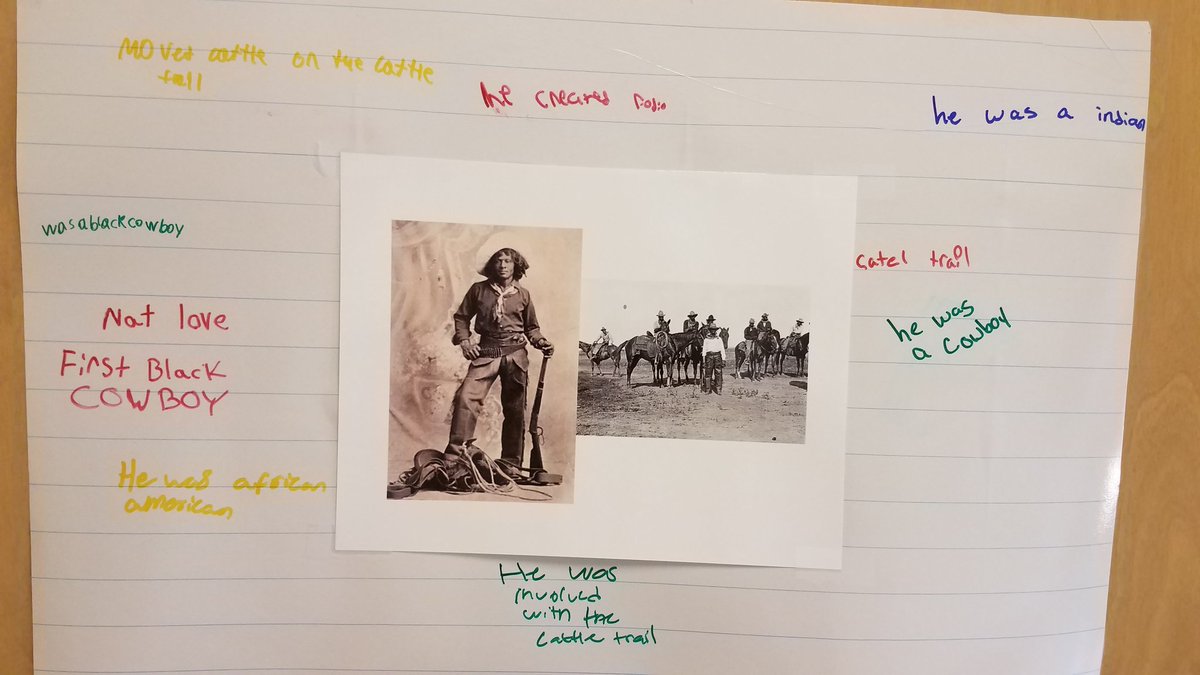 MOVed cattle on the cattle
tall
he creared rodio
he was a indian
wasablackcowboy
catel trail
Nat love
he was
a cowboy
First Black
COWBOY
He was african
american
He was
involved
with the
cattle trail